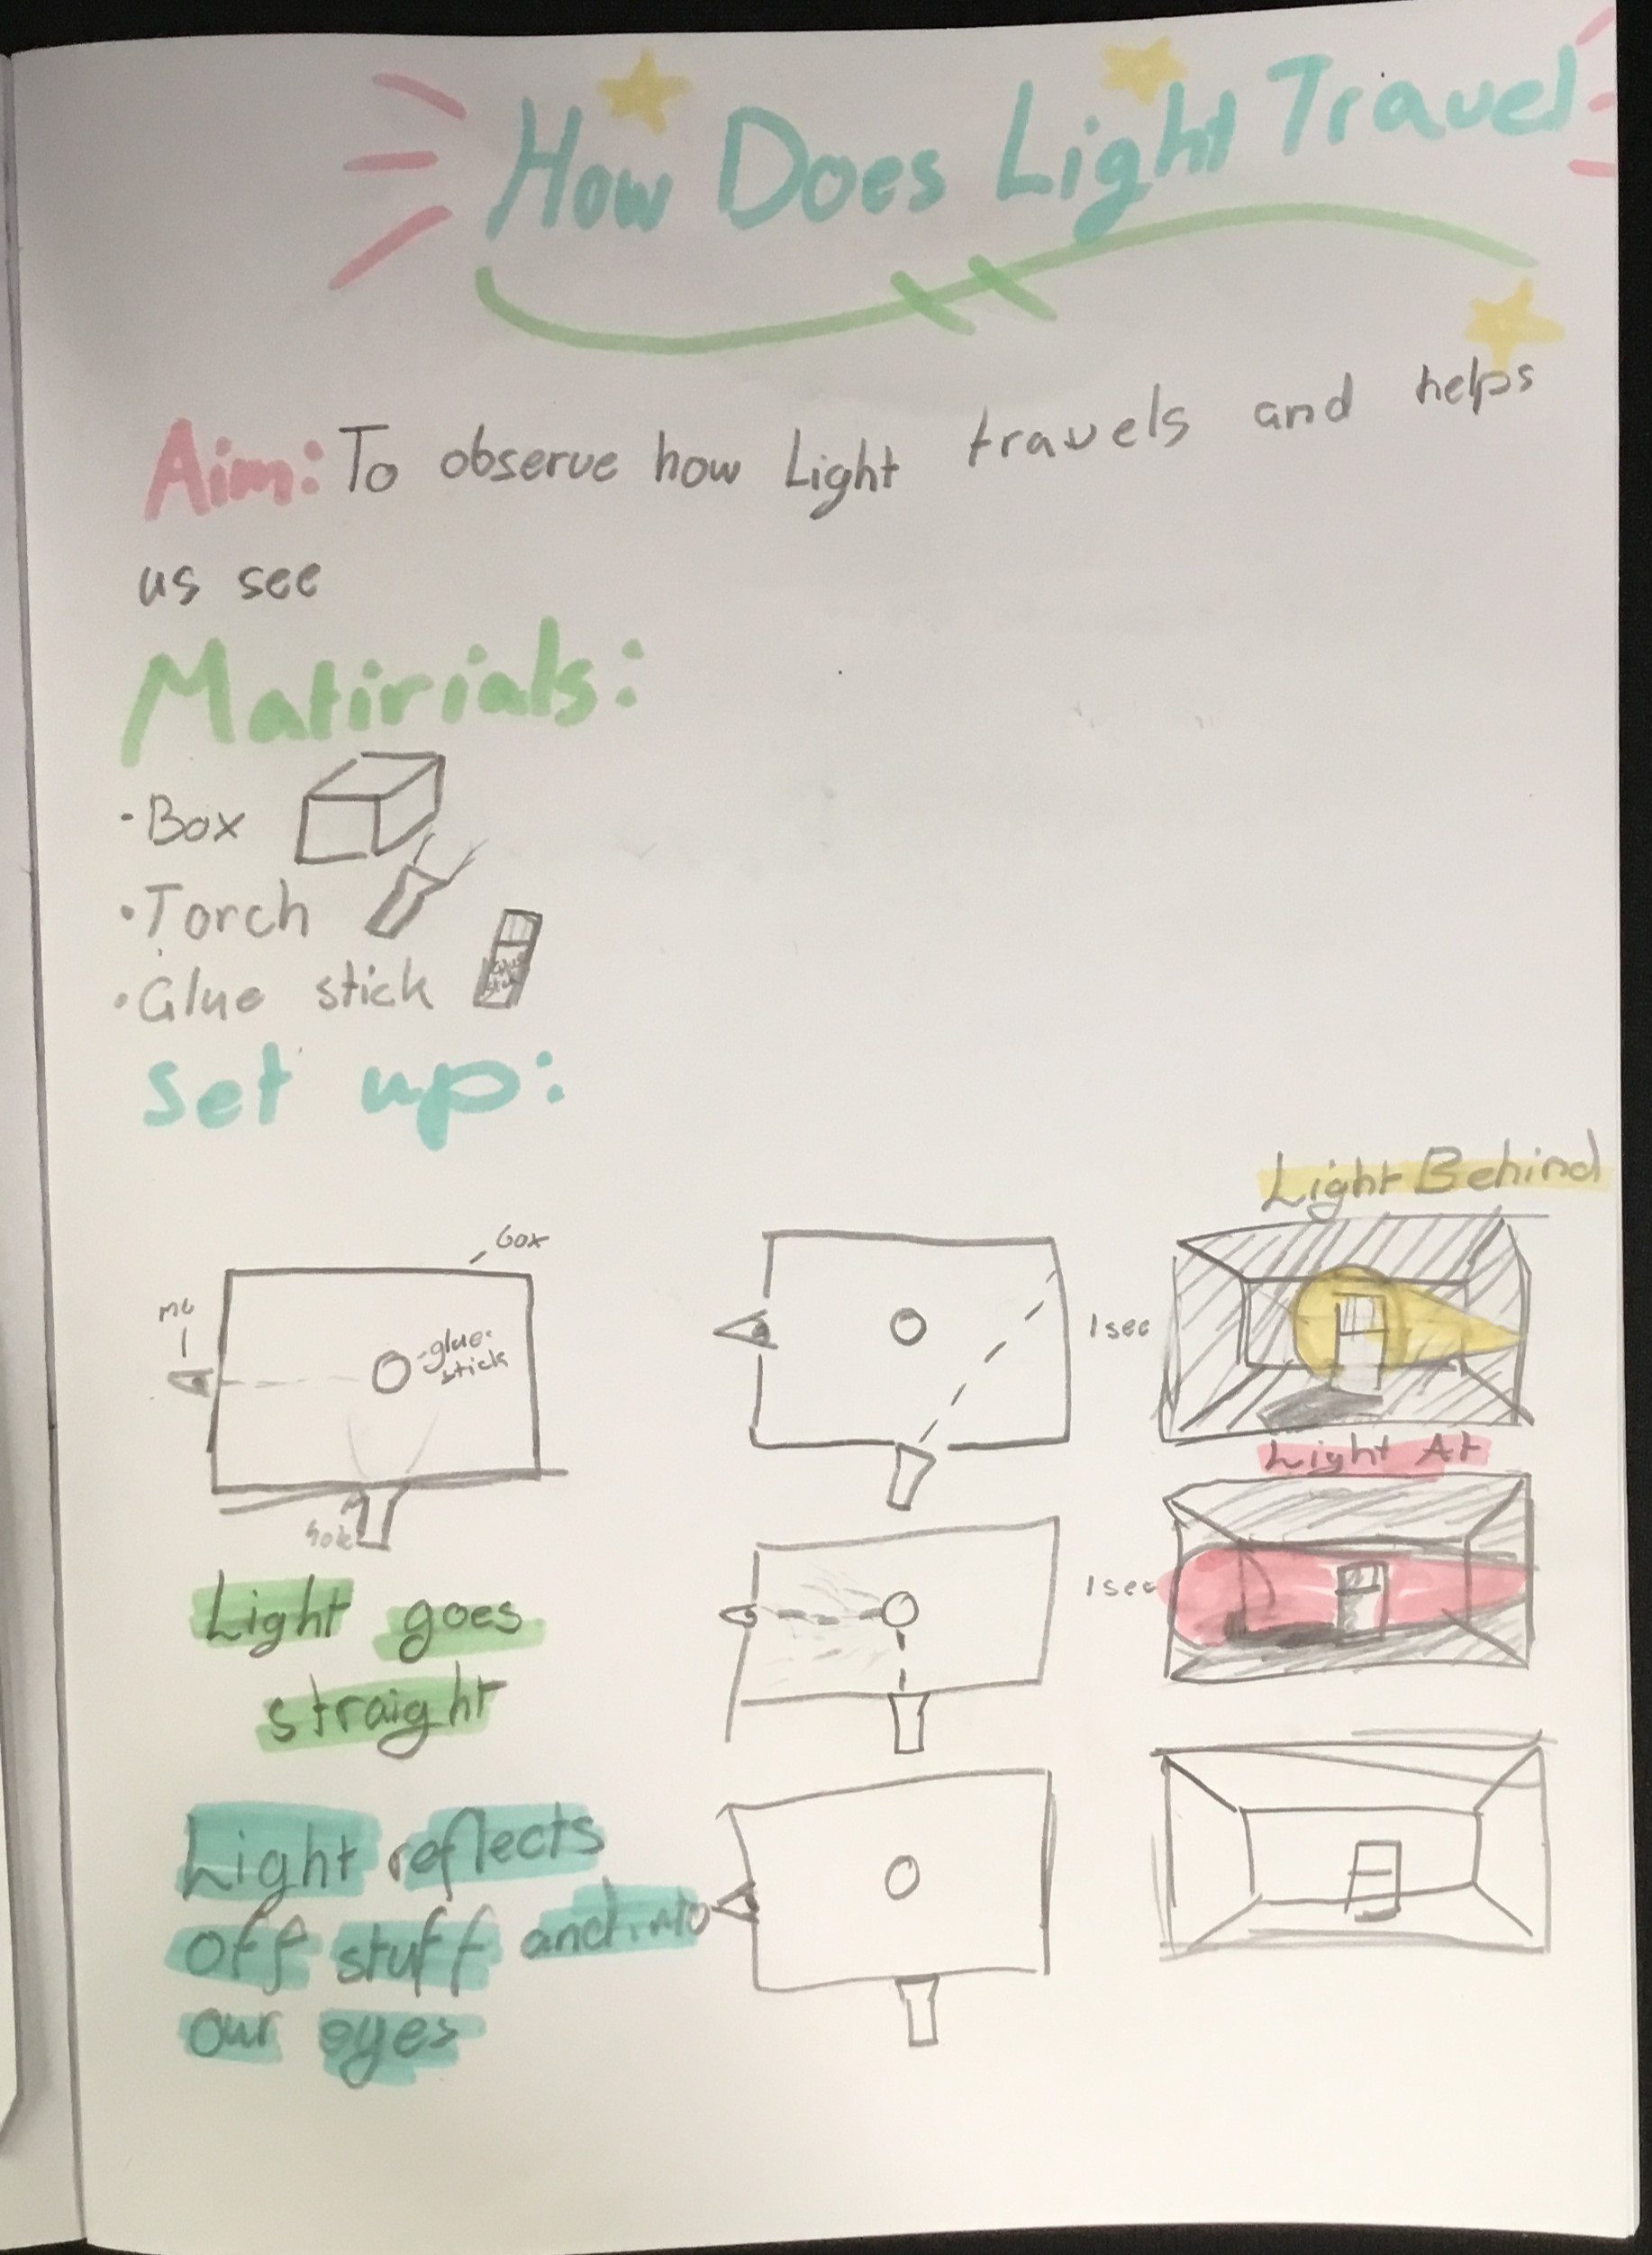 How Does Light Travel
Aim: To observe how Light travels and helps
us see
Matirials:
· Box
· Torch
· Glue stick
set up:
Light Behind
box
me
glue
stick
hole
1 sec
Light At
1 sec
Light goes
straight
Light reflects
off stuff and into
our eyes